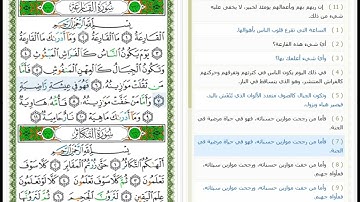 سُورَةُ القَارِعَةِ
بِسْمِ اللَّهِ الرَّحْمَٰنِ الرَّحِيمِ
الْقَارِعَةُ ١ مَا الْقَارِعَةُ ٢ وَمَا أَدْرَاكَ مَا الْقَارِعَةُ ٣
يَوْمَ يَكُونُ النَّاسُ كَالْفَرَاشِ الْمَبْثُوثِ ٤
وَتَكُونُ الْجِبَالُ كَالْعِهْنِ الْمَنْفُوشِ ٥ فَأَمَّا
مَنْ ثَقُلَتْ مَوَازِينُهُ ٦ فَهُوَ فِي عِيشَةٍ رَاضِيَةٍ ٧
وَأَمَّا مَنْ خَفَّتْ مَوَازِينُهُ ٨ فَأُمُّهُ هَاوِيَةٌ ٩
وَمَا أَدْرَاكَ مَا هِيَهْ ١٠ نَارٌ حَامِيَةٌ ١١
سُورَةُ التَّكَاثُرِ
بِسْمِ اللَّهِ الرَّحْمَٰنِ الرَّحِيمِ
أَلْهَاكُمُ التَّكَاثُرُ ١ حَتَّىٰ زُرْتُمُ الْمَقَابِرَ ٢ كَلَّا سَوْفَ
تَعْلَمُونَ ٣ ثُمَّ كَلَّا سَوْفَ تَعْلَمُونَ ٤ كَلَّا لَوْ
(11) إن ربهم بهم وبأعمالهم يومئذ لخبير، لا يخفى عليه شيء من ذلك.
(1) الساعة التي تقرع قلوب الناس بأهوالها.
(2) أيُّ شيء هذه القارعة؟
(3) وأيُّ شيء أعلمك بها؟
(4) في ذلك اليوم يكون الناس في كثرتهم وتفرقهم وحركتهم كالفراش المنتشر، وهو الذي يتساقط في النار.
(5) وتكون الجبال كالصوف متعدد الألوان الذي يُنْفَش باليد، فيصير هباء ويزول.
(6) فأما من رجحت موازين حسناته، فهو في حياة مرضية في الجنة.
(7) فأما من رجحت موازين حسناته، فهو في حياة مرضية في الجنة.
(8) وأما من خفت موازين حسناته، ورجحت موازين سيئاته، فمأواه جهنم.
(9) وأما من خفت موازين حسناته، ورجحت موازين سيئاته، فمأواه جهنم.